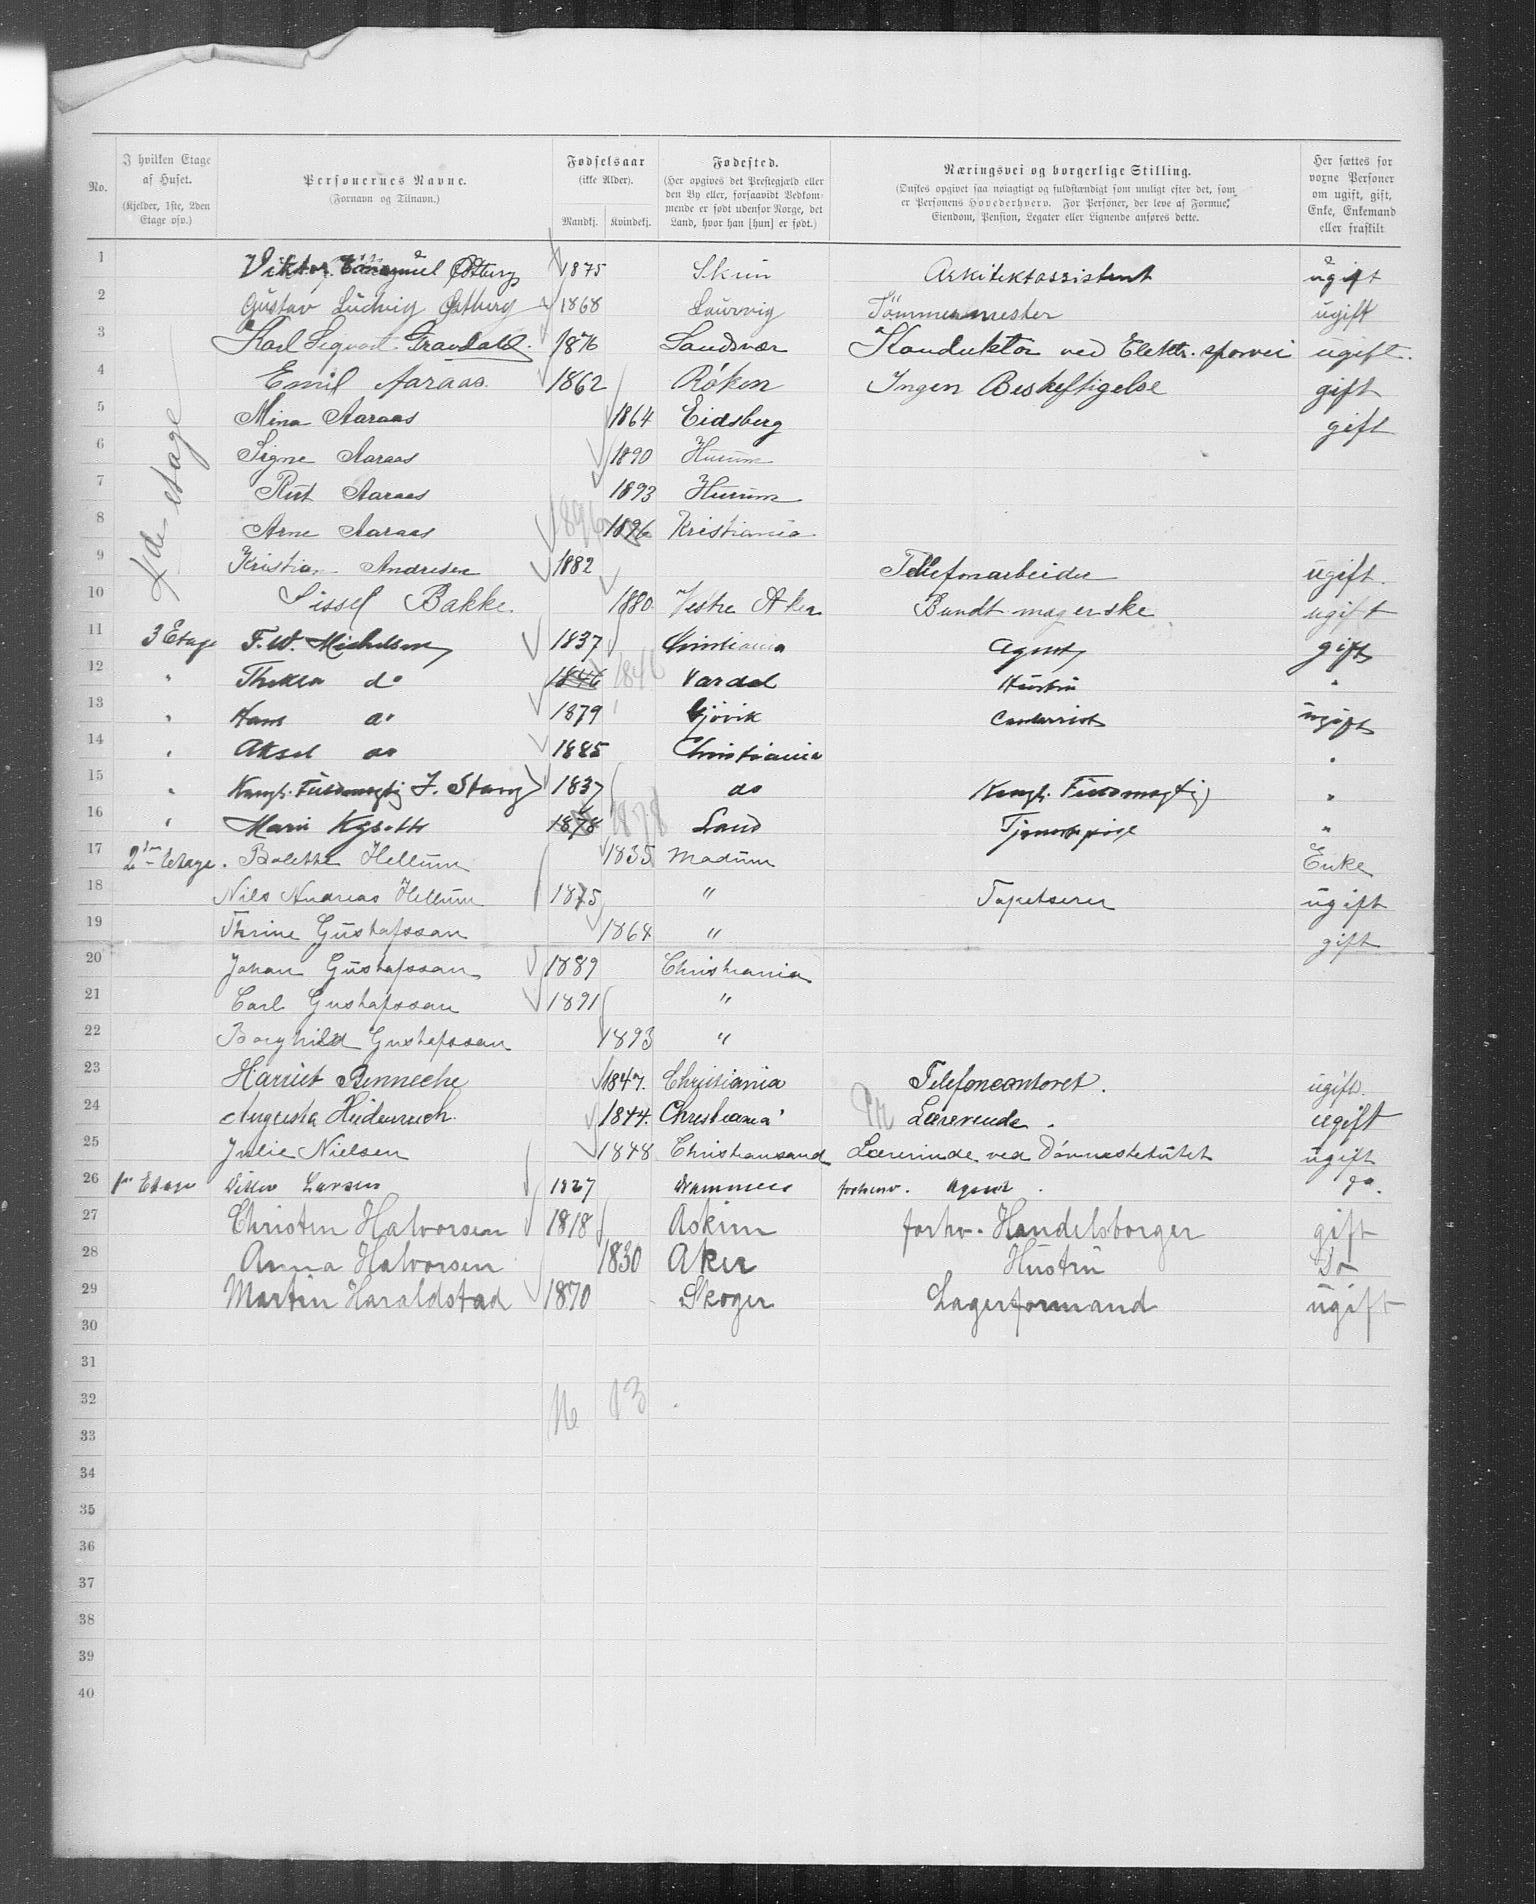 No.
I hvilken Etage af Huset.
(Kjelder, 1ste, 2den Etage osv.)
Personernes Navne.
(Fornavn og Tilnavn.)
Fødselsaar
(ikke Alder).
Mandkj. Kvindekj.
Fødested.
(Her opgives det Prestegjæld eller den By eller, forsaavidt Vedkommende er født udenfor Norge, det Land, hvor han [hun] er født.)
Næringsvei og borgerlige Stilling.
(Ønskes opgivet saa nøiagtigt og fuldstændigt som muligt efter det, som er Personens Hovederhverv. For Personer, der leve af Formue, Eiendom, Pension, Legater eller Lignende anføres dette.
Her sættes for voxne Personer om ugift, gift, Enke, Enkemand eller fraskilt
4de etage
1 Viktor Emanuel Østberg 1875 Skien Arkitektassistent ugift
2 Gustav Ludvig Østberg 1868 Laurvig Tömmermester ugift
3 Karl Sigvart Gravdahl. 1876 Sandsvær Konduktör ved Elektr. sporvei ugift.
4 Emil Aaraas. 1862 Røken Ingen Beskeftigelse gift
5 Mina Aaraas 1864 Eidsberg gift
6 Signe Aaraas 1890 Hurum
7 Rut Aaraas 1893 Hurum
8 Arne Aaraas 1896 1896 Kristiania
9 Kristian Andresen 1882 Telefonarbeider ugift.
10 Sissel Bakke. 1880 Vestre Aker Bundtmagerske ugift
11 3 Etage F. W. Michelsen 1837 Christiania Agent gift
12 " Thekla do 1846 1846 Vardal Hustru "
13 " Hans do 1879 Gjövik Contorist ugift
14 " Aksel do 1885 Christiania "
15 " Kongl. Fuldmægtig J. Stang 1837 do Kongl. Fuldmægtig "
16 " Marie 1878 1878 Land Tjenestepige "
17 2den Etage. Bolette Hellum 1835 Modum Enke
18 Nils Andreas Hellum 1875 " Tapetserer ugift
19 Thrine Gustafssan 1864 " gift
20 Johan Gustafssan 1889 Christiania
21 Carl Gustafssan 1891 "
22 Borghild Gustafssan 1893 "
23 Harriet Benneche 1847. Christiania Telefoncontoret. ugift.
24 Augusta Heidenreich. 1844. Christiania Lærerinde. ugift
25 Julie Nielsen 1848 Christiansand Lærerinde ved Døvinstitutet ugift
26 1ste Etage Ditlev Larsen 1827 Drammen forhenv. Agent. do.
27 Christen Halvorsen 1818 Askim forhv. Handelsborger gift
28 Anna Halvorsen 1830 Aker Hustru Do
29 Martin Haraldstad 1870 Skoger Lagerformand ugift
30
31
32
16 13
33
34
35
36
37
38
39
40